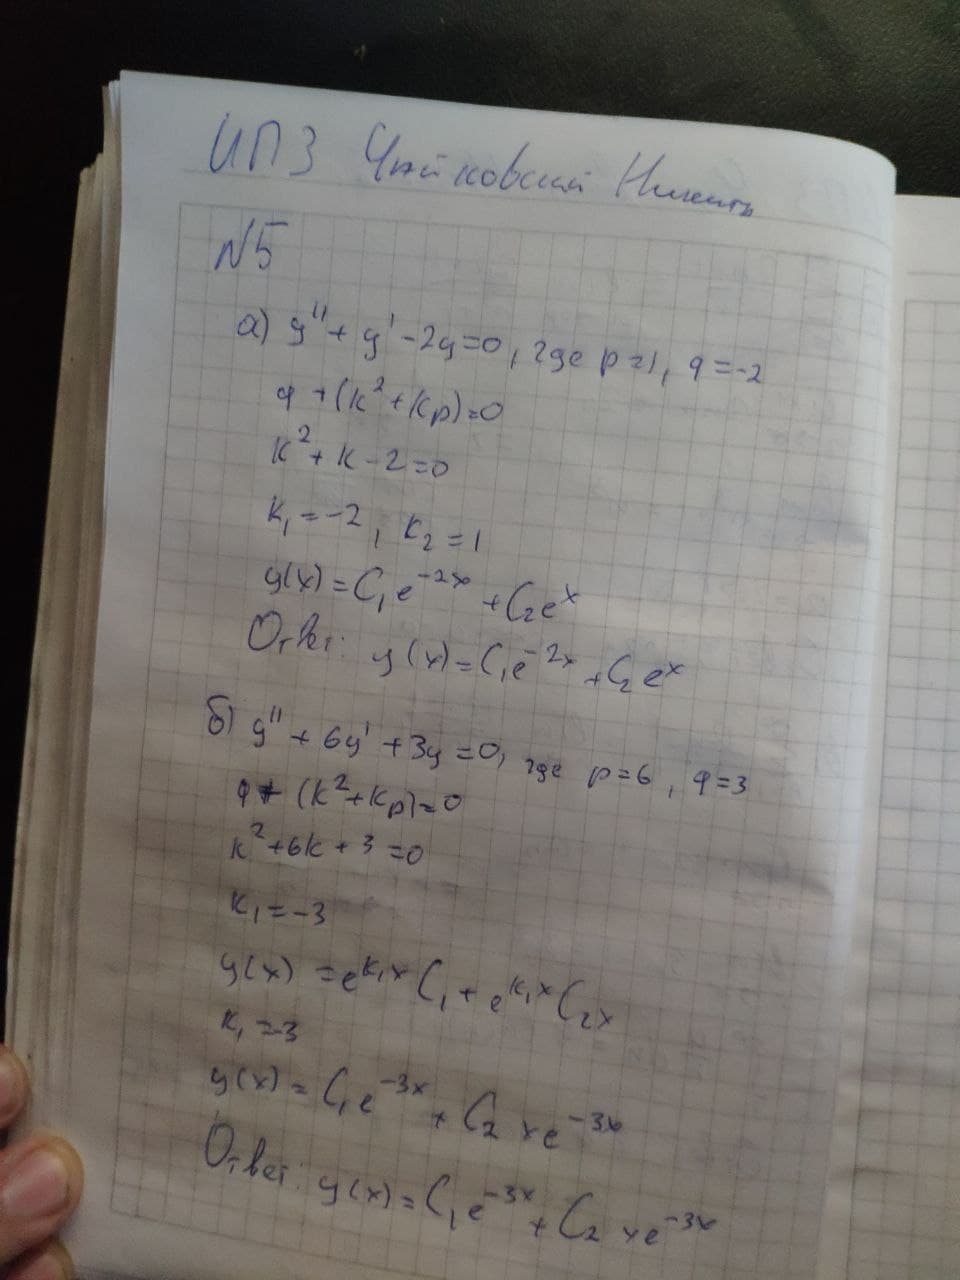 ИПЗ Чайковский Никита
№5
а) y'' + y' - 2y = 0, где p = 1, q = -2
q + (k² + kp) = 0
k² + k - 2 = 0
k₁ = -2, k₂ = 1
y(x) = C₁e⁻²ˣ + C₂eˣ
Ответ: y(x) = C₁e⁻²ˣ + C₂eˣ
б) y'' + 6y' + 3y = 0, где p = 6, q = 3
q + (k² + kp) = 0
k² + 6k + 3 = 0
k₁ = -3
y(x) = e^{k₁x} C₁ + e^{k₁x} C₂x
k₁ = -3
y(x) = C₁e⁻³ˣ + C₂xe⁻³ˣ
Ответ: y(x) = C₁e⁻³ˣ + C₂xe⁻³ˣ